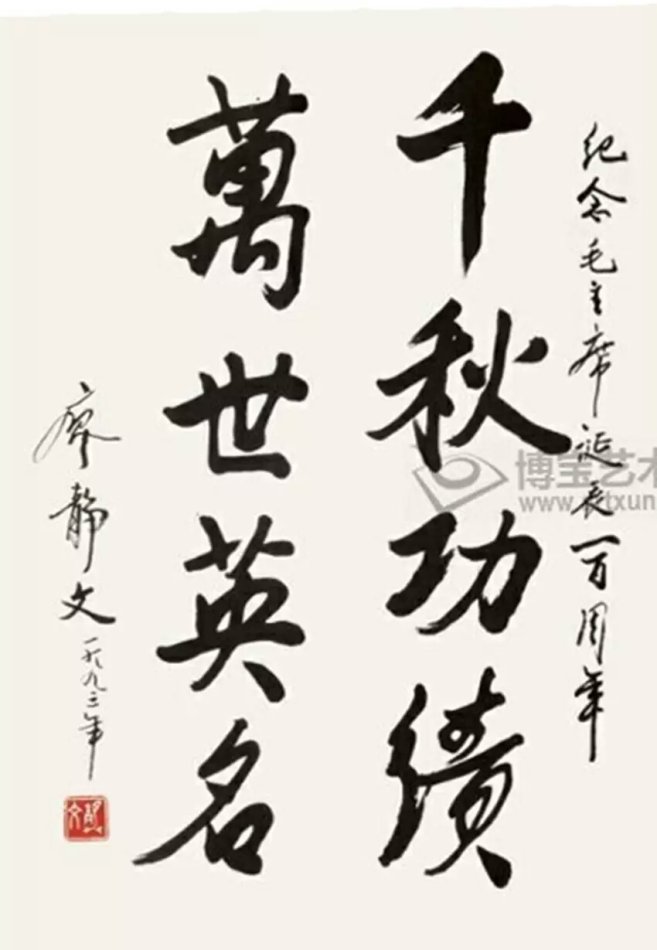 纪念毛主席诞辰一百周年
千秋功績
萬世英名
廖静文
一九九三年
博宝艺术